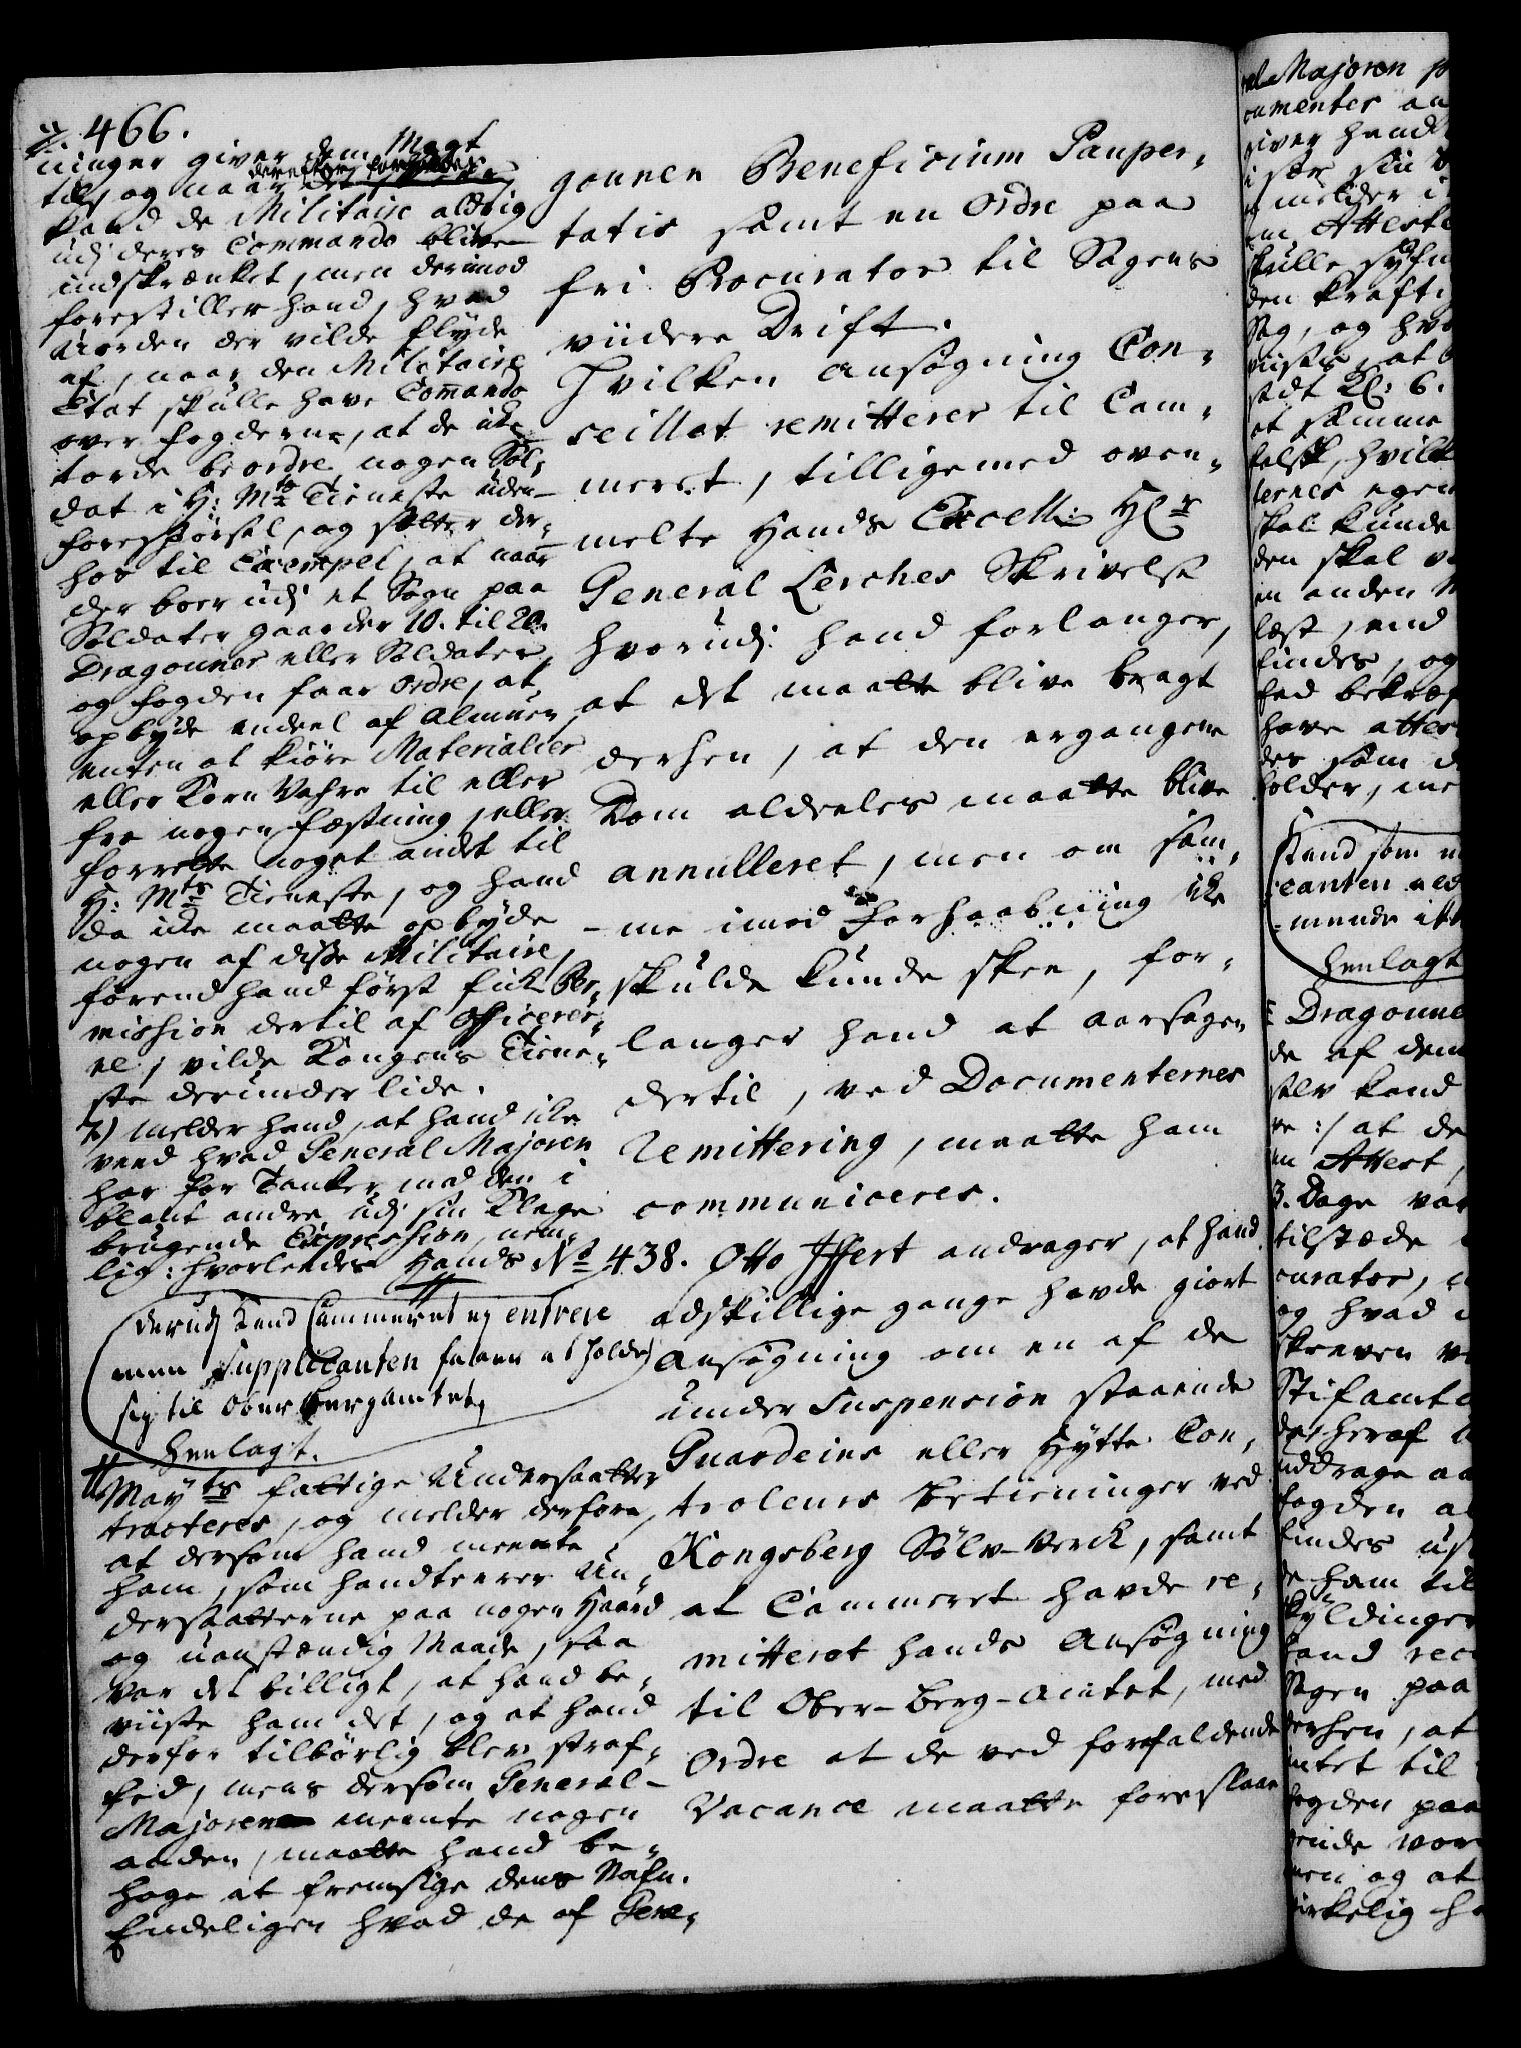 466.
ninger giver dem Magt
til, og naar derefter forholdes
kand de Militaire aldrig
udj deres Commando blive
indskrænket, men derimod
forestiller hand, hvad
Uorden der vilde flyde
af, naar den Militaire
Etat skulle have Commando
over fogderne, at de ike
torde beordre nogen Sol-
dat i H: Mts Tieneste uden
forespørsel, og sætter der-
hos til Exempel, at naar
der boer udj et Sogn paa
Soldater gaarder 10. til 20.
Dragouner eller Soldater,
og fogden faar Ordre, at
opbyde endeel af Almuen,
enten at kiøre Materialier
eller Korn Vahre til eller
fra nogen fæstning, eller
forrette noget andet til
H: Mts Tieneste, og hand
da ike maatte opbyde
nogen af disse Militaire,
førend hand først fick Per-
mission dertil af Officerer-
ne, vilde Kongens Tiene-
ste derunder lide.
7) melder hand, at hand ike
veed hvad General Majoren
har for Tanker med den i
blant andre udj sin Klage
brugende Expression, nem-
lig: hvorledes Hands
derudj Kand Cammeret ej entrere
men Supplicanten faaer at holde
sig til Ober Bergamtet,
henlagt.
Mayts fattige Undersaatter
tracteres, og melder derfore,
at dersom hand meente
ham, som handterer Un-
dersaatterne paa nogen Haard
og uanstændig Maade, saa
var det billigt, at hand be-
viiste ham det, og at hand
derfor tilbørlig blev straf-
fed, mens dersom General-
Majoren meente nogen
anden, maatte hand be-
hage at fremsige dens Nafn.
Endeligen hvad de af Gene-
gounen Beneficium Pauper-
tatis samt en Ordre paa
fri Procurator til Sagens
viidere Drift.
Hvilken ansøgning Con-
seillet remitterer til Cam-
meret, tilligemed oven-
melte Hands Excell: Hr
General Lerches Skrivelse
hvorudj hand forlanger,
at det maatte blive bragt
derhen, at den ergangene
Dom aldeeles maatte blive
annulleret, men om sam-
me imod Forhaabning ike
skulde kunde skee, for-
langer hand at aarsagen
dertil, ved Documenternes
Remittering, maatte ham
communiceres.
No 438. Otto Iffert andrager, at hand
adskillige gange havde giort
ansøgning om en af de
under Suspension staaende
Guardeins eller Hytte Con-
troleurs betieninger ved
Kongsberg Sølv-Verck, samt
at Cammeret havde re-
mitteret hands Ansøgning
til Ober-Berg-Amtet, med
Ordre at de ved forefaldende
Vacance maatte foreslaae
Majoren
cumenter
giver hand
melder
Attest
skulle
den krafti
Sag, og
at
Kl: 6.
at samme
hvilk
ternes egen
skal kunde
den skal
en anden
læst, end
findes, og
have attes
des som
holder, me
Kand som
canten
henlagt
Dragoune
de af dem
selv kand
at de
en Attest,
3. Dage
tilstæde
curator,
og hvad
skreven
Stifamt
heraf
uddrage
fogden
findes
ham til
Sagen paa
derhen, at
intet til
fogden paa
og at